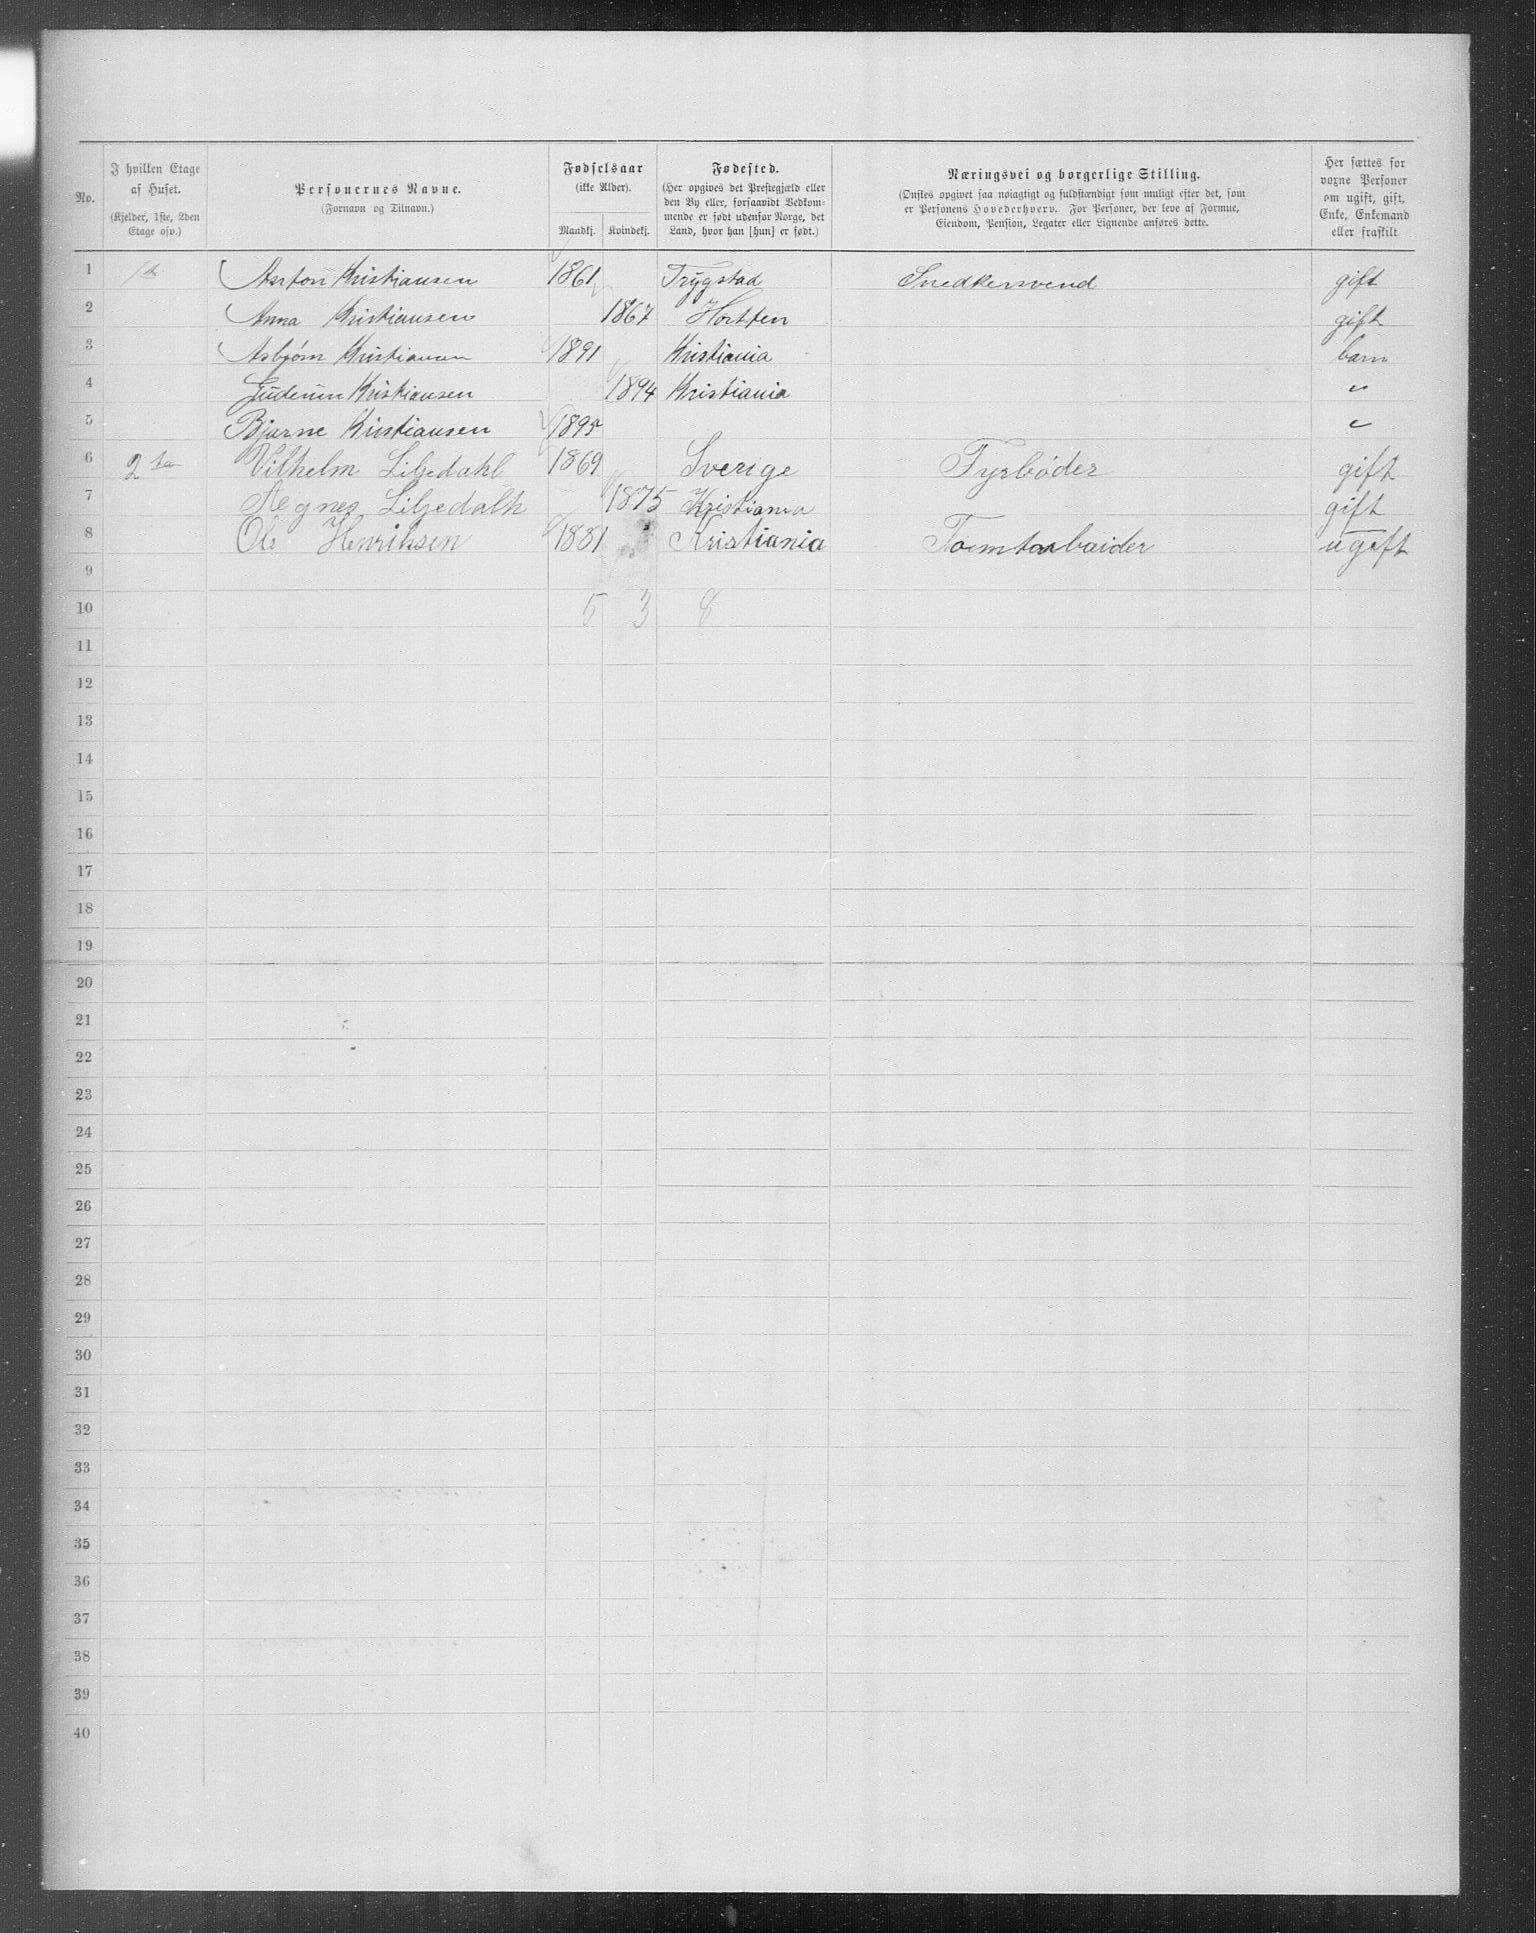 No.
I hvilken Etage af Huset.
(Kjelder, 1ste, 2den Etage osv.)
Personernes Navne.
(Fornavn og Tilnavn.)
Fødselsaar
(ikke Alder).
Mandkj. Kvindekj.
Fødested.
(Her opgives det Prestegjæld eller
den By eller, forsaavidt Vedkom-
mende er født udenfor Norge, det
Land, hvor han [hun] er født.)
Næringsvei og borgerlige Stilling.
(Ønskes opgivet saa nøiagtigt og fuldstændigt som muligt efter det, som
er Personens Hovederhverv. For Personer, der leve af Formue,
Eiendom, Pension, Legater eller Lignende anføres dette.
Her sættes for
voxne Personer
om ugift, gift,
Enke, Enkemand
eller fraskilt
1 Anton Kristiansen 1861 Trygstad Snedkersvend gift
2 Anna Kristiansen 1867 Hortten gift
3 Asbjørn Kristiansen 1891 Kristiania barn
4 Guderun Kristiansen 1894 Kristiania "
5 Bjarne Kristiansen 1895 "
6 2 Vilhelm Liljedahl 1869 Sverige Fyrbøder gift
7 Aegnes Liljedalh 1875 Kristiania gift
8 Ole Henriksen 1881 Kristiania Tomtarbaider ugift
9
10 5 3 8
11
12
13
14
15
16
17
18
19
20
21
22
23
24
25
26
27
28
29
30
31
32
33
34
35
36
37
38
39
40